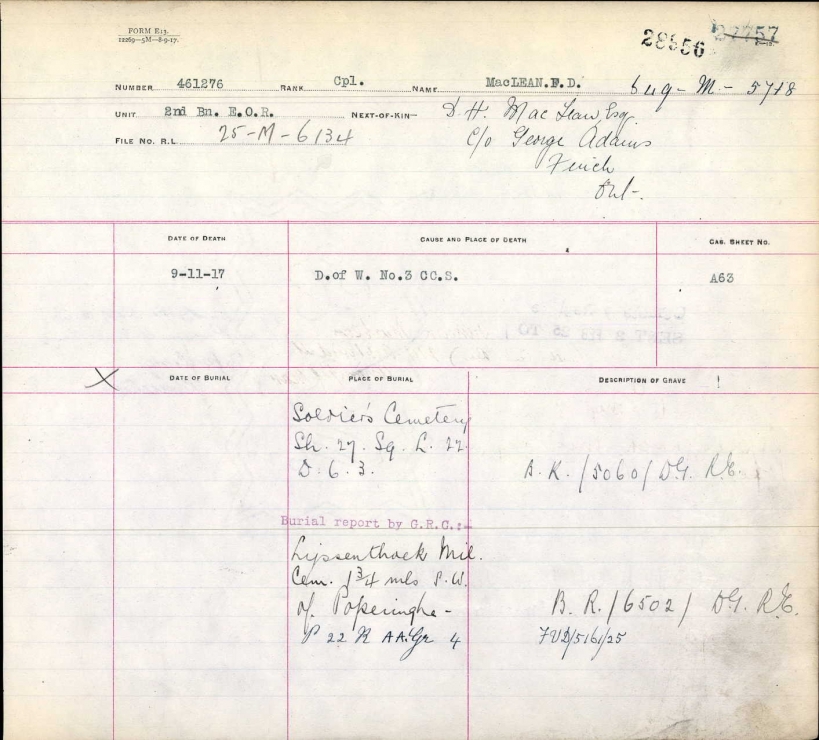 FORM E13.
12269—5M—8-9-17.
28956 27757
NUMBER 461276 RANK Cpl. NAME MacLEAN.F.D. 649-M-5718
UNIT 2nd Bn. E.O.R. NEXT-OF-KIN— D H. MacLean Esq
FILE No. R.L. 25-M-6134 c/o George Adams
Finch
Ont-.
DATE OF DEATH CAUSE AND PLACE OF DEATH CAS. SHEET NO.
9-11-17 D.of W. No.3 CC.S. A63
DATE OF BURIAL PLACE OF BURIAL DESCRIPTION OF GRAVE
Soldier's Cemetery
Sh. 27. Sq. L. 22.
D. 6. 3. B.R./5060/D.G.R.E.
Burial report by G.R.C.:-
Lijssenthoek Mil.
Cem. 1¾ mls S.W.
of Poperinghe - B.R./6502/ D.G.R.E.
P 22 R AA. Gr 4